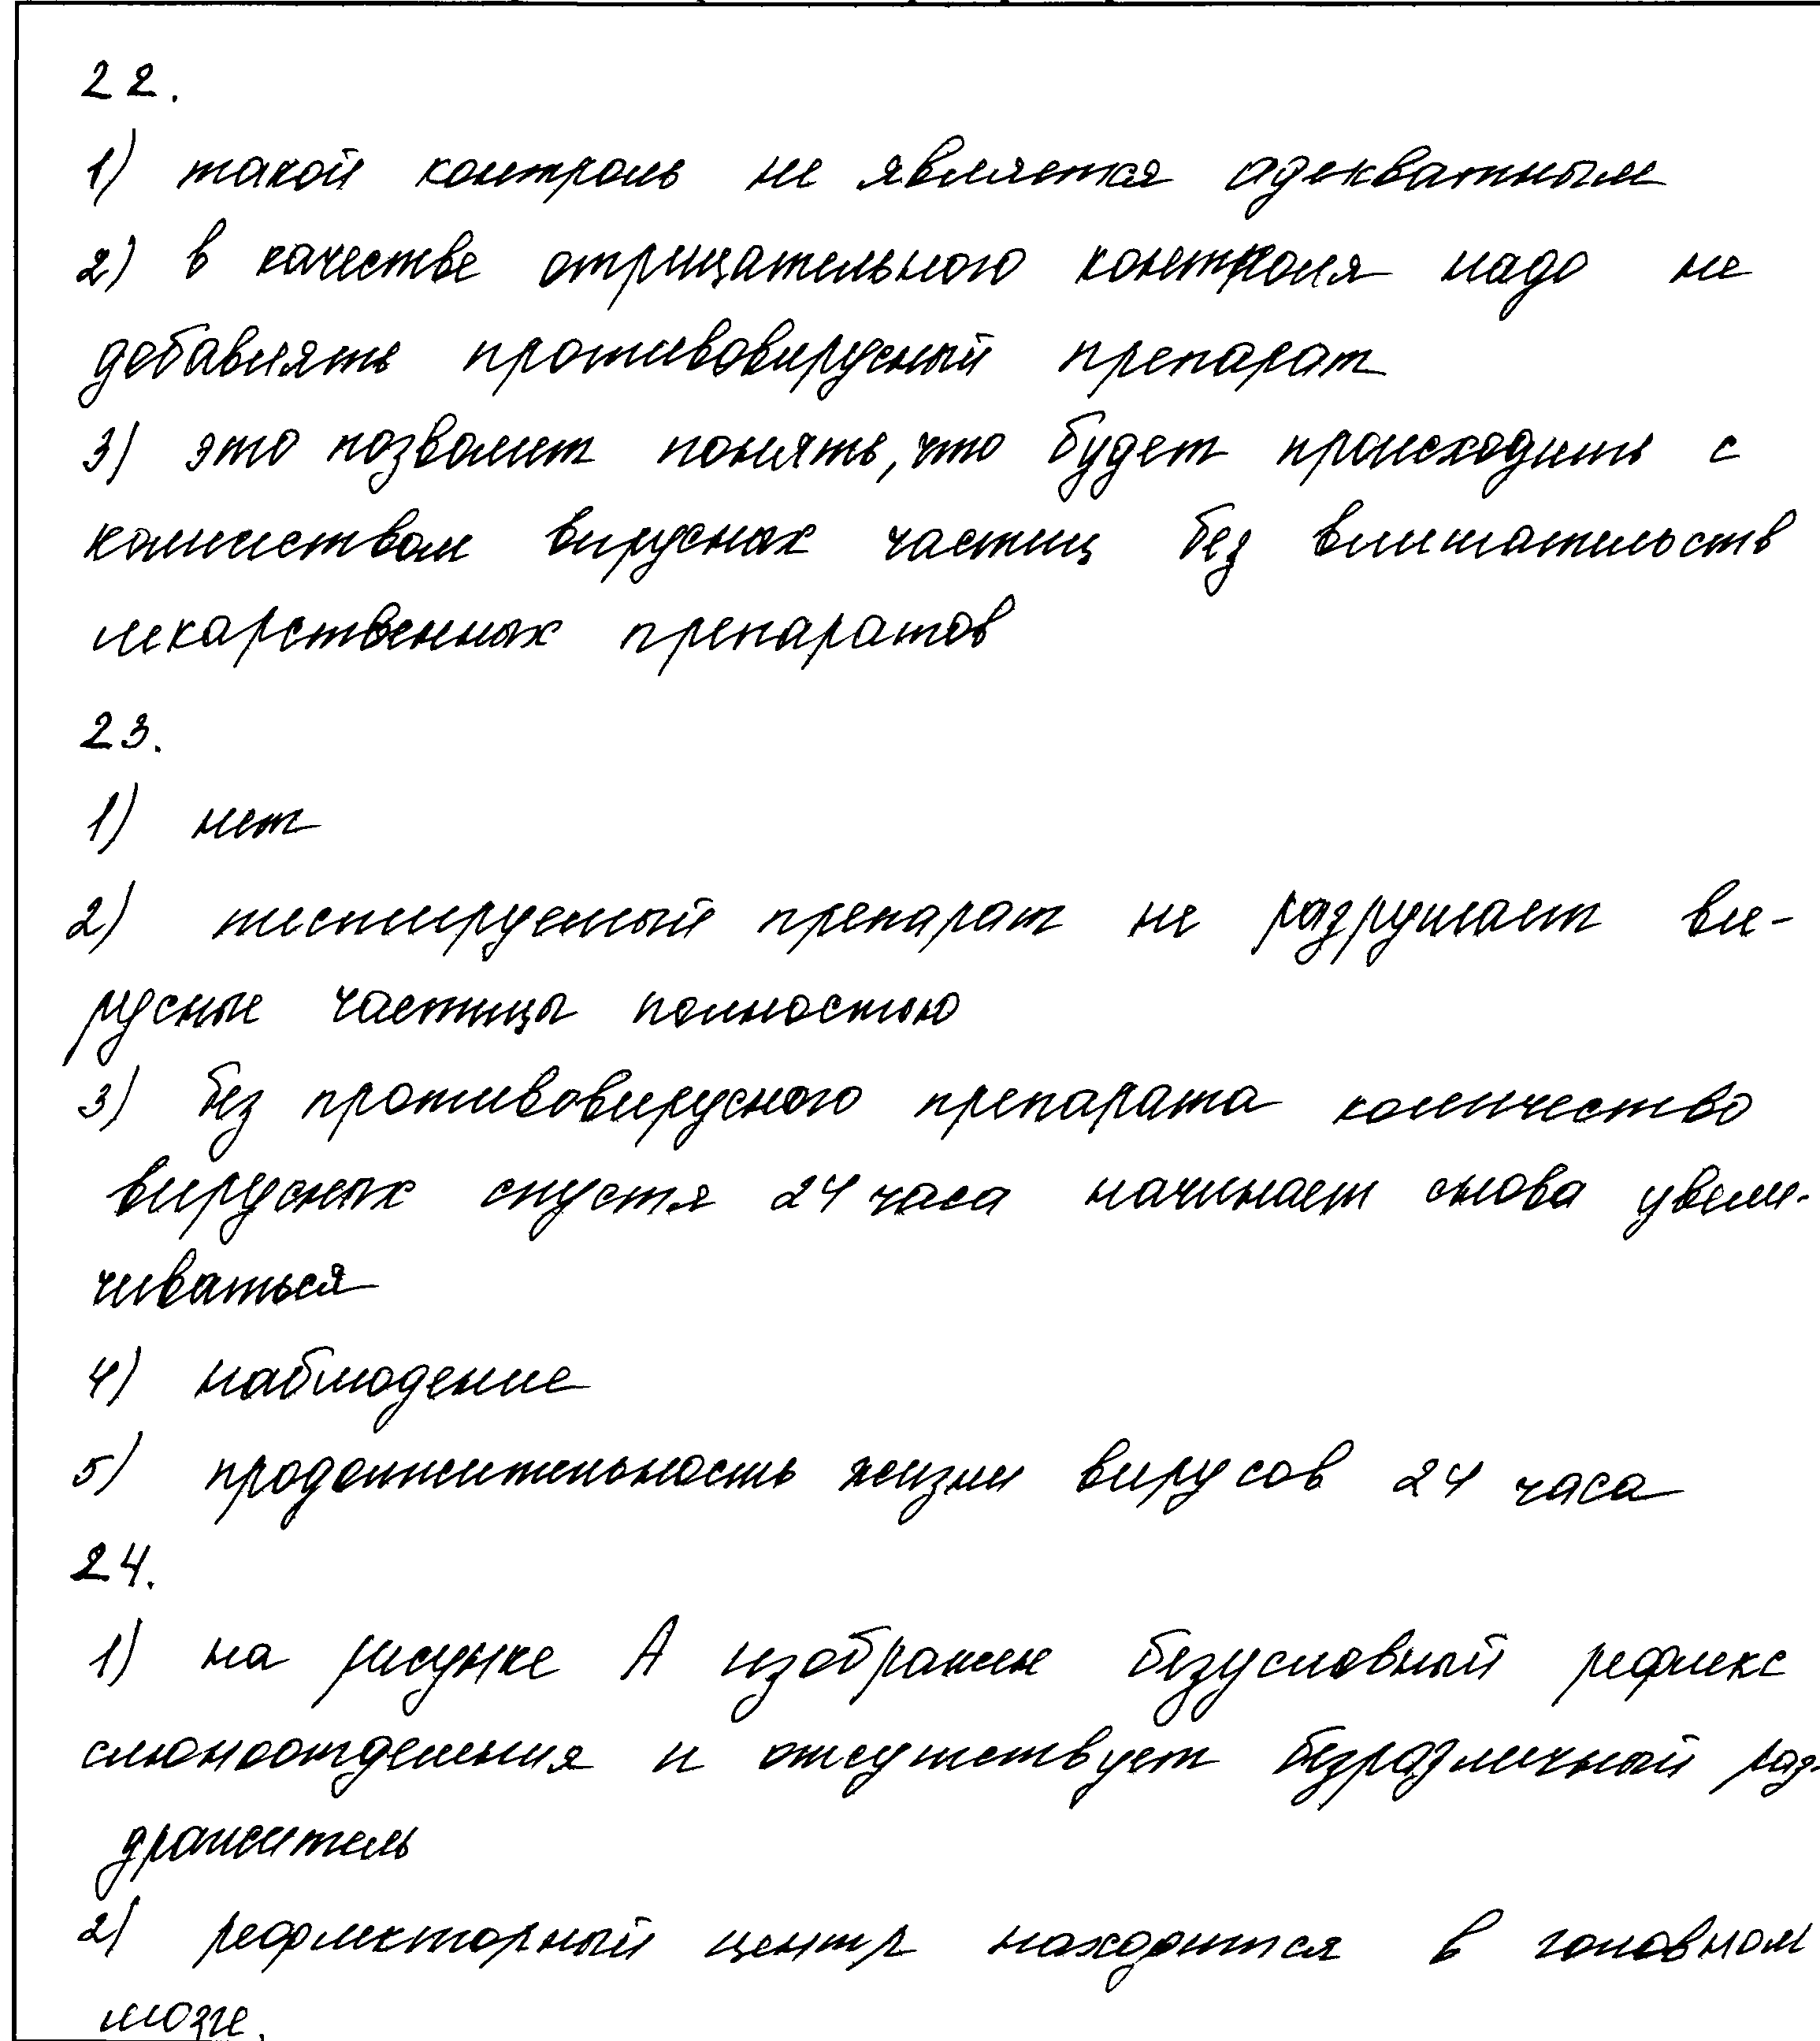 22.
1) такой контроль не является адекватным
2) в качестве отрицательного контроля надо не
добавлять противовирусный препарат
3) это позволит понять, что будет происходить с
количеством вирусных частиц без вмешательств
лекарственных препаратов
23.
1) нет
2) тестируемый препарат не разрушает ви-
русные частицы полностью
3) без противовирусного препарата количество
вирусных спустя 24 часа начинает снова увели-
чиваться
4) наблюдение
5) продолжительность жизни вирусов 24 часа
24.
1) на рисунке А изображен безусловный рефлекс
слюноотделения и отсутствует безразличный раз-
дражитель
2) рефлекторный центр находится в головном
мозге.